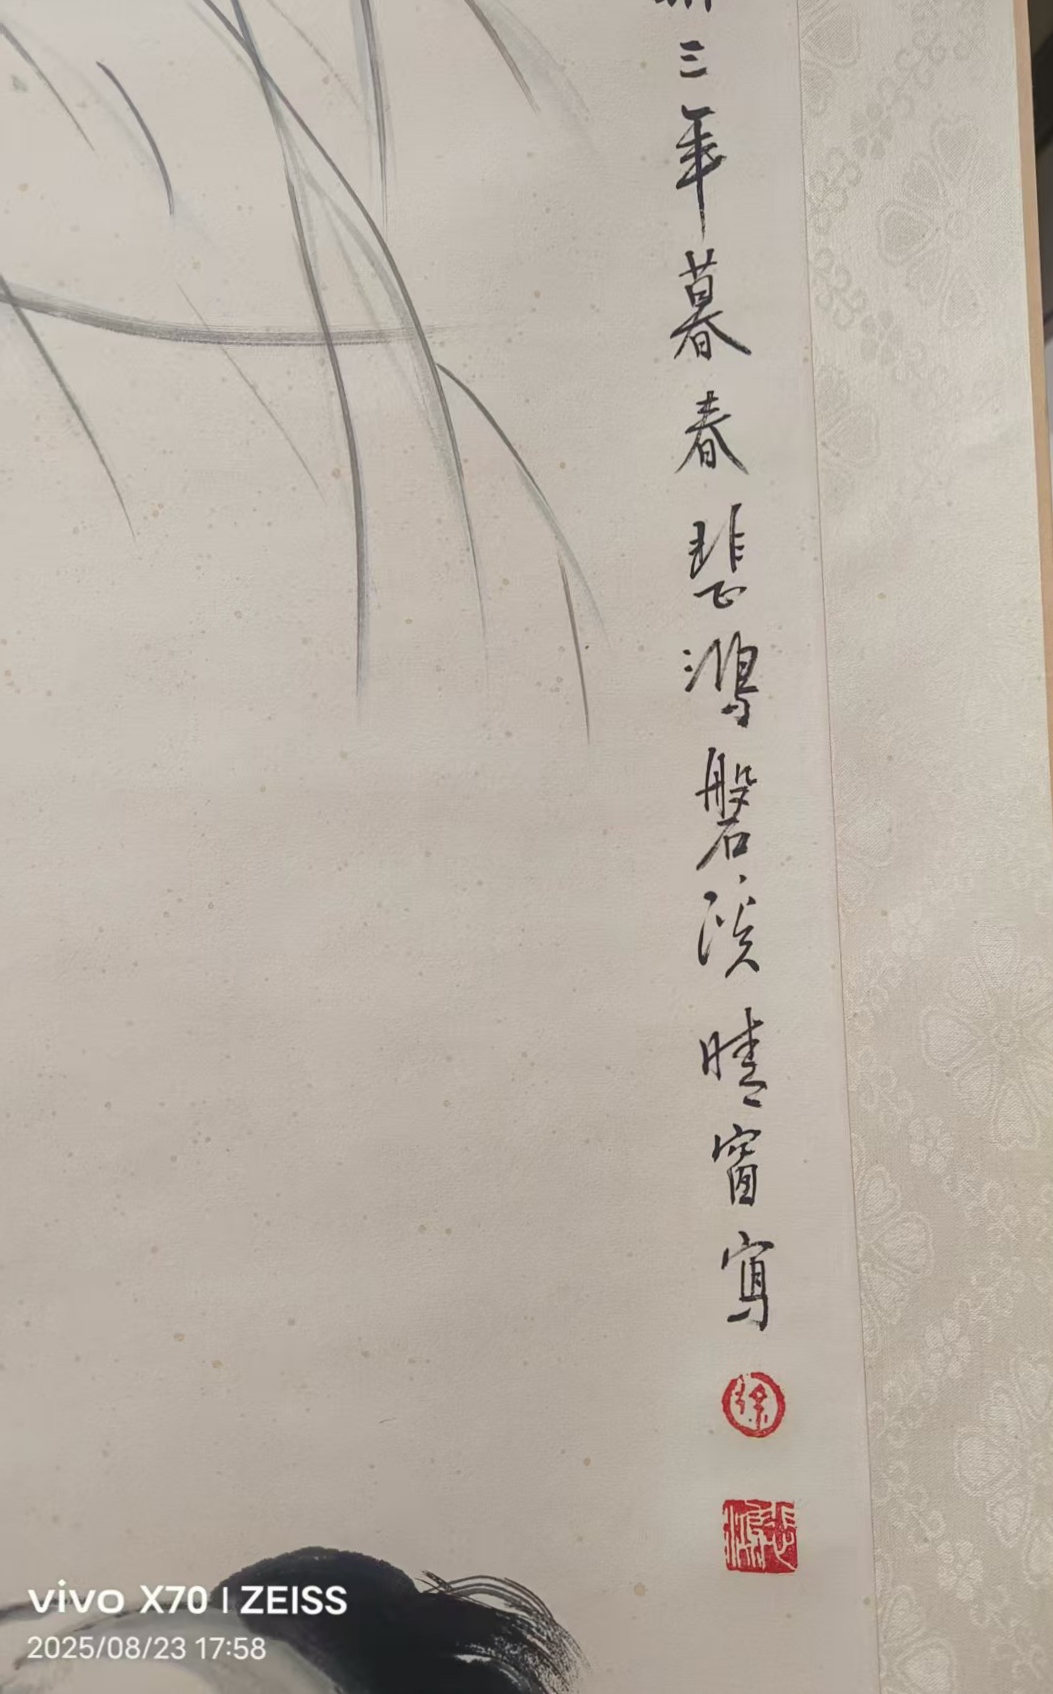 三年暮春悲鴻磐溪晴窗寫
徐
悲鴻
vivo X70 | ZEISS
2025/08/23 17:58